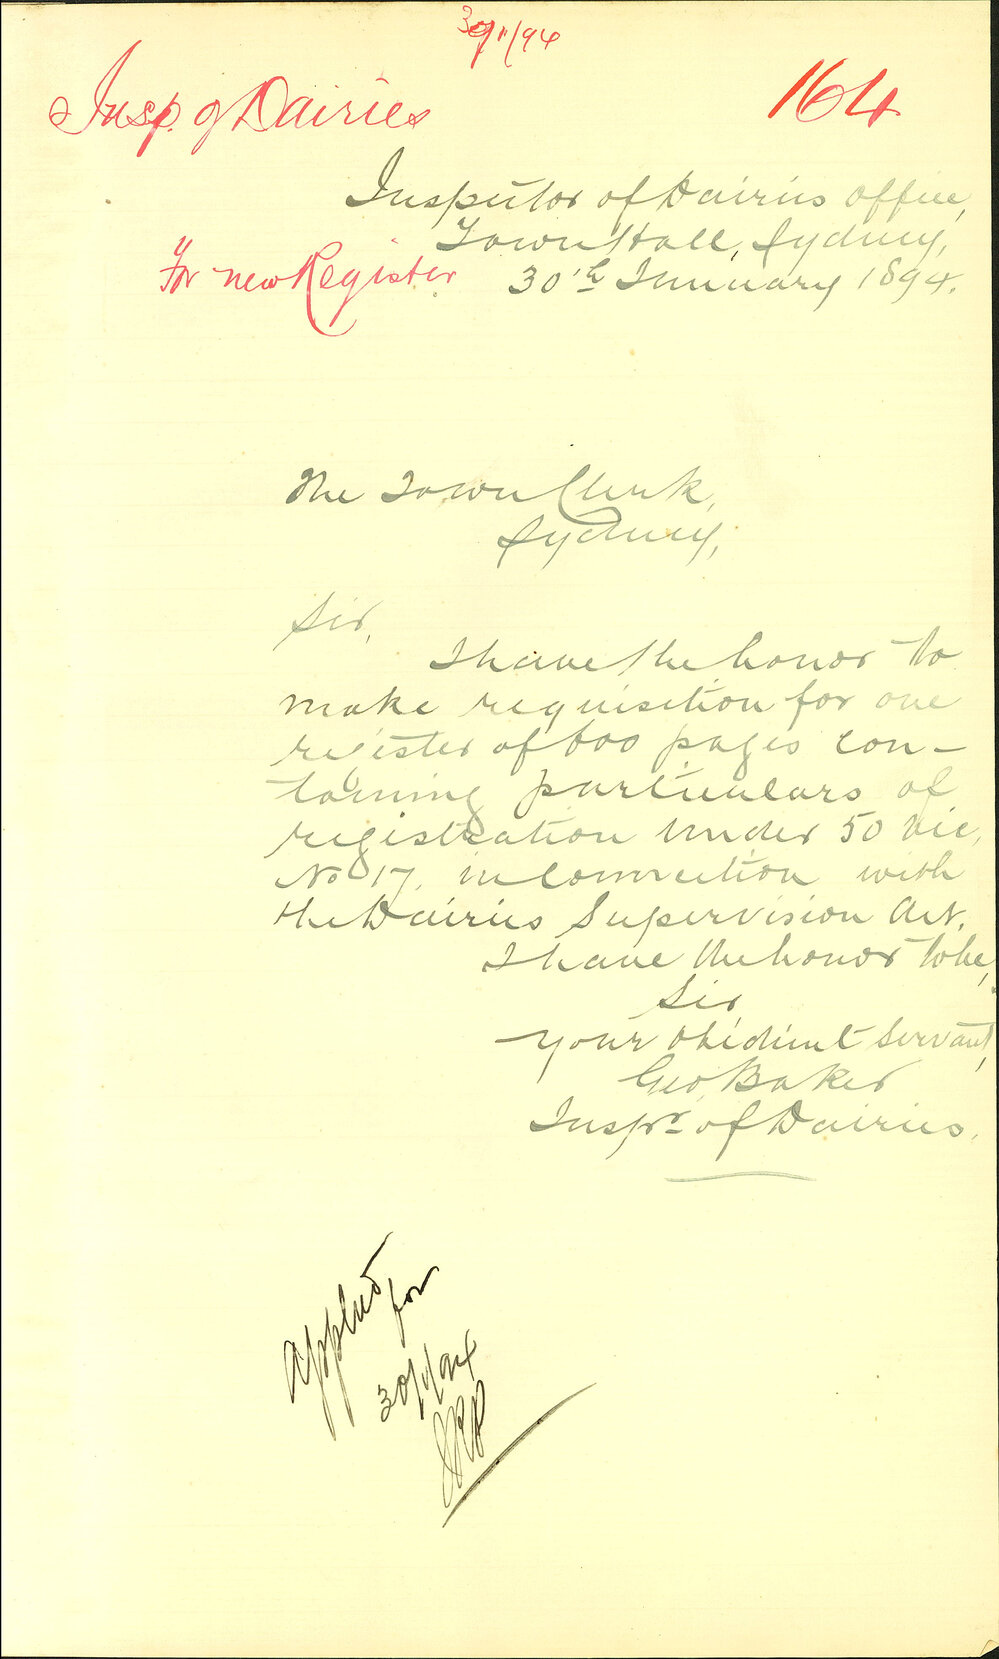 30/1/94
Insp. of Dairies
164
Inspector of Dairies Office,
Town Hall, Sydney,
For new Register
30th January 1894.
The Town Clerk,
Sydney,
Sir,
I have the honor to
make requisition for one
register of 600 pages con-
taining particulars of
registration under 50 Vic,
No 17. in connection with
the Dairies Supervision Act.
I have the honor to be,
Sir,
Your obedient Servant,
Geo, Baker
Inspr of Dairies.
Applied
for
30/1/94